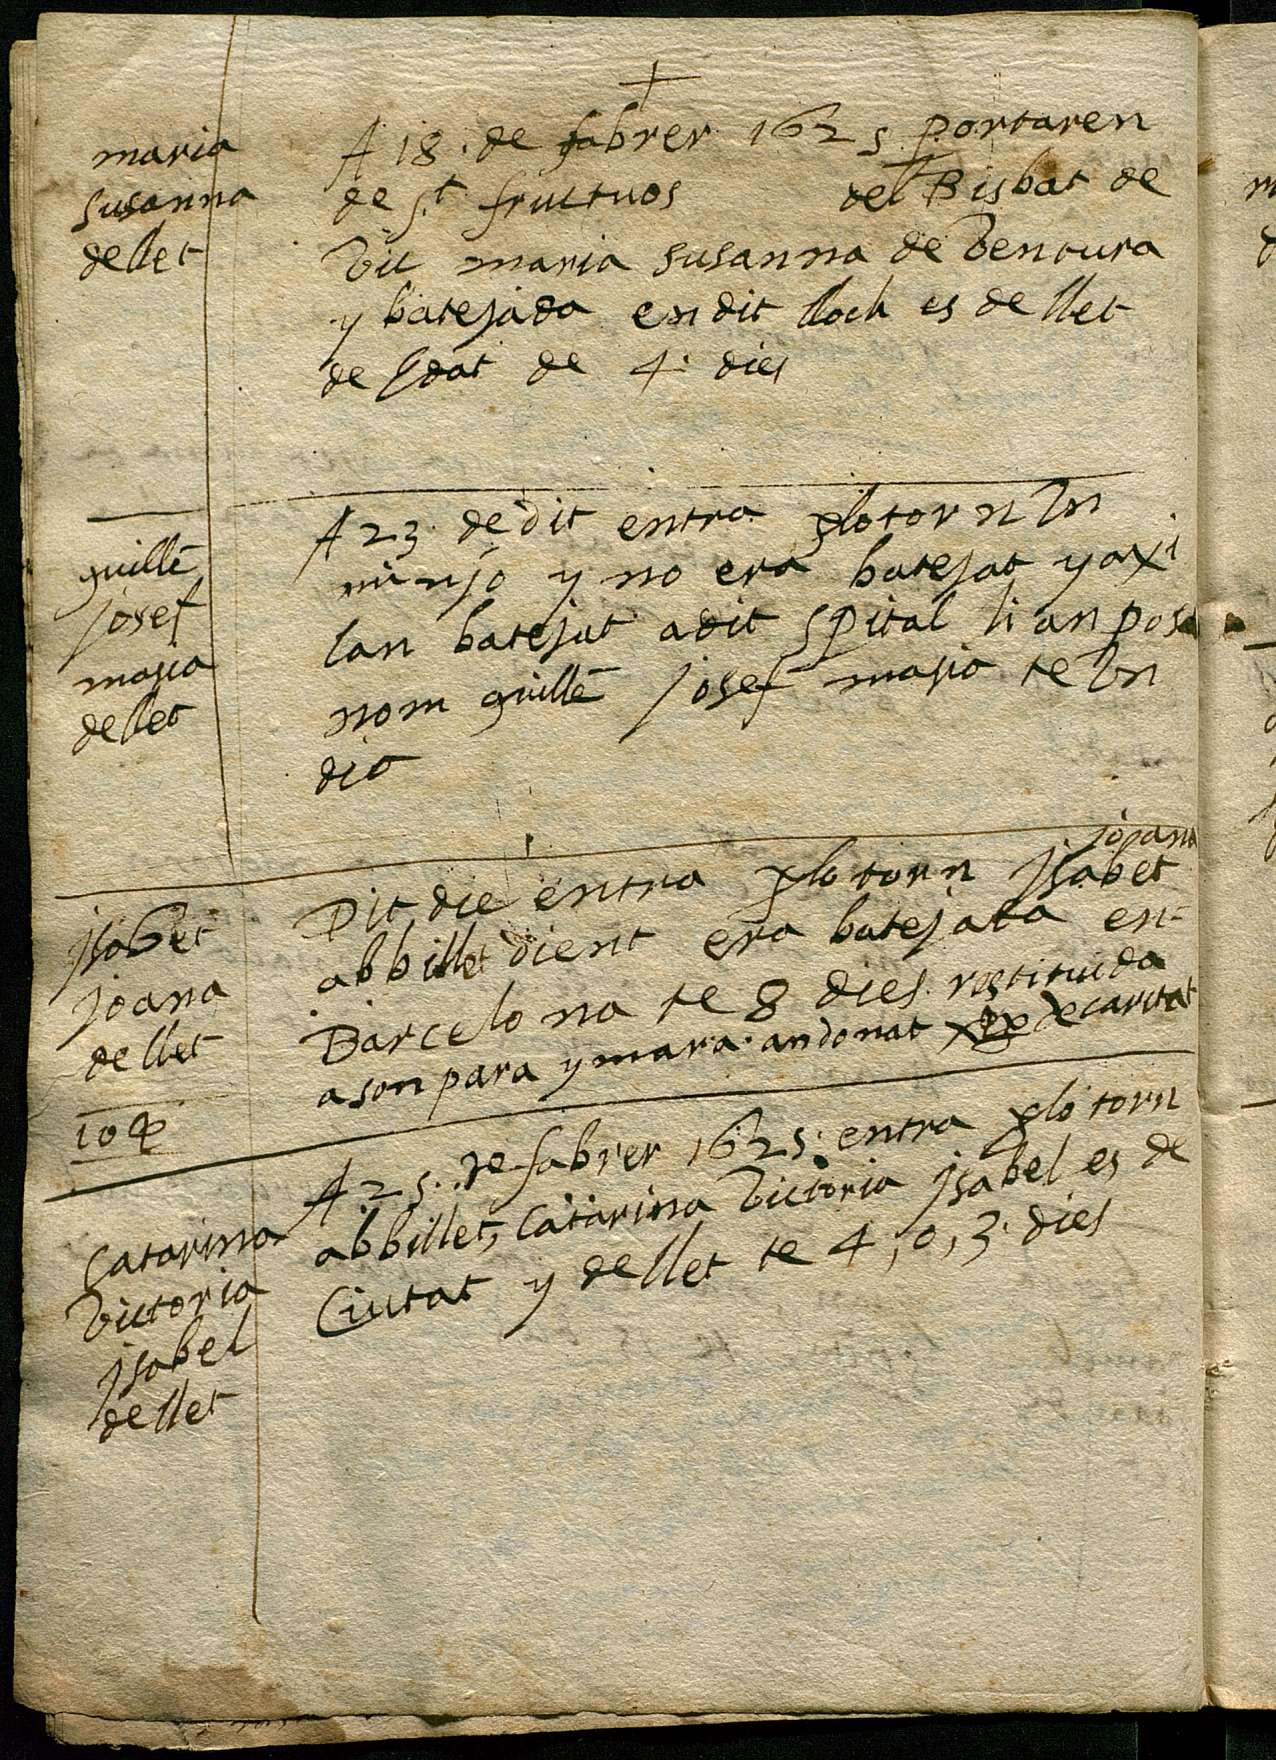 maria
susanna
de llet
A 18. de fabrer 1625 portaren
de st fructuos del Bisbat de
Vic maria susanna de Ventura
y batejada en dit lloch es de llet
de Edat de 4. dies
guille
Josef
maria
de llet
A 23 de dit entra plo torn Vn
minyo y no era batejat y axi
lan batejat a dit spital li an posat
nom guille Josef maria te Vn
dia
Jsabet
Joana
de llet
10 ₰
Dit die entra plo torn Jsabet
joana
ab billet dient era batejada en
Barcelona te 8 dies. restituida
a son para y mara. an donat de caritat
Catarina
Victoria
Jsabel
de llet
A 25. de fabrer 1625. entra plo torn
ab billet, Catarina Victoria Jsabel es de
Ciutat y de llet te 4, o, 3. dies